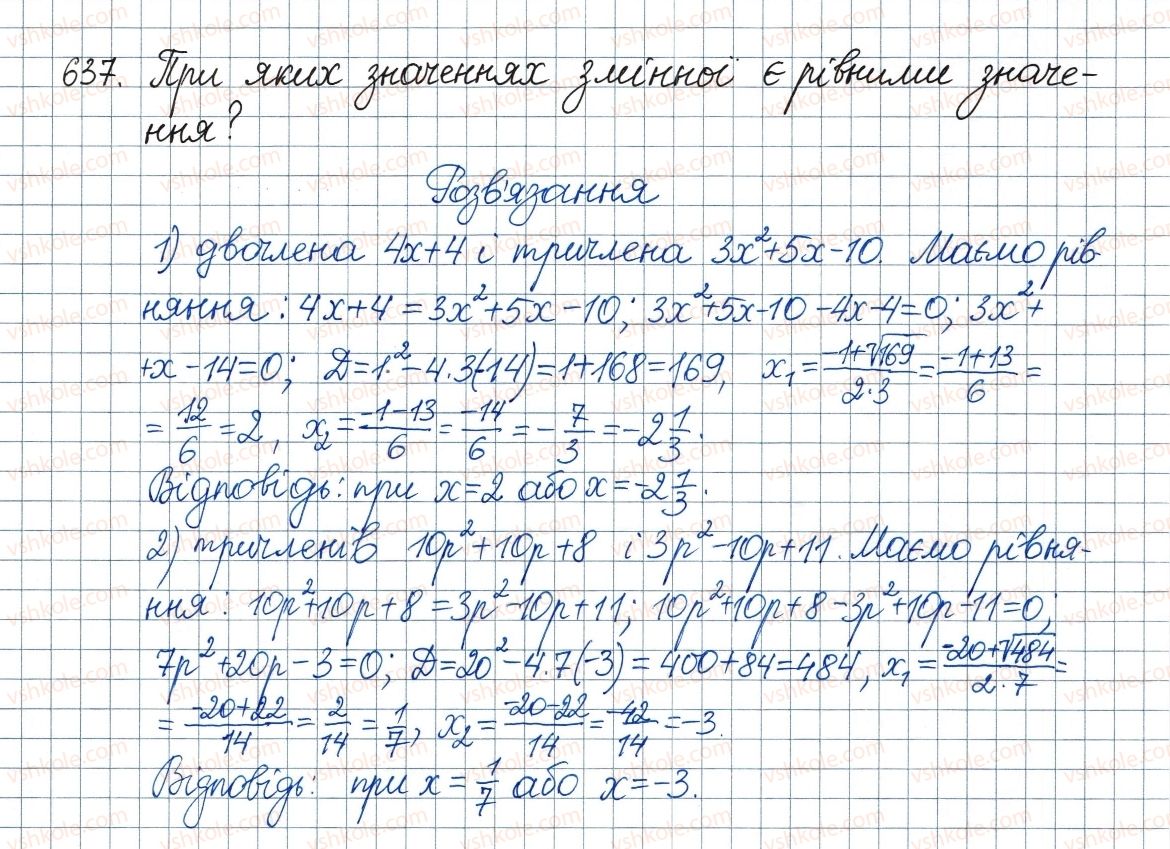 637. При яких значеннях змінної є рівними значе-
ння?
Розв'язання
1) двочлена 4x+4 і тричлена 3x²+5x-10. Маємо рів-
няння: 4x+4=3x²+5x-10; 3x²+5x-10-4x-4=0; 3x²+
+x-14=0; D=1²-4·3(-14)=1+168=169, x₁=(-1+√169)/(2·3)=(-1+13)/6=
=12/6=2, x₂=(-1-13)/6=-14/6=-7/3=-2 1/3.
Відповідь: при x=2 або x=-2 1/3.
2) тричленів 10p²+10p+8 і 3p²-10p+11. Маємо рівня-
ння: 10p²+10p+8=3p²-10p+11; 10p²+10p+8-3p²+10p-11=0;
7p²+20p-3=0; D=20²-4·7(-3)=400+84=484, x₁=(-20+√484)/(2·7)=
=(-20+22)/14=2/14=1/7, x₂=(-20-22)/14=-42/14=-3.
Відповідь: при x=1/7 або x=-3.